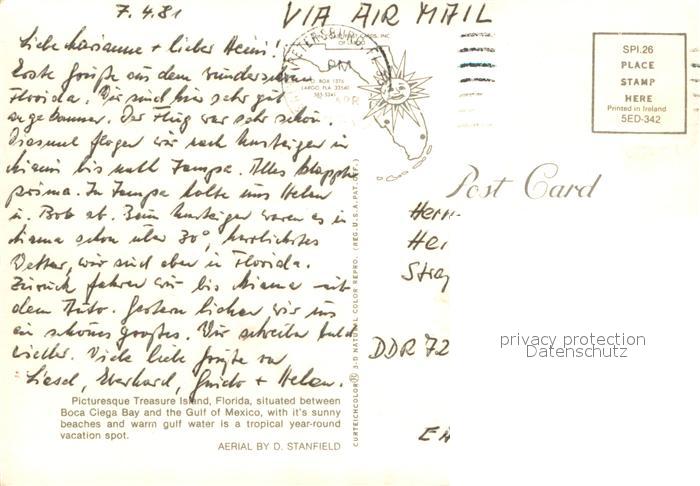 7.4.81
VIA AIR MAIL
Liebe Marianne + lieber Heini!
Erste Grüße aus dem wunderschönen
Florida. Wir sind hier sehr gut
angekommen. Der Flug war sehr schön.
Diesmal flogen wir nach Umsteigen in
Miami bis nach Tampa. Alles klappte
prima. In Tampa holte uns Helen
u. Bob ab. Beim Umsteigen waren es in
Miami schon über 30°, herrlichstes
Wetter, wir sind eben in Florida.
Zurück fahren wir bis Miami mit
dem Auto. Gestern liehen wir uns
ein schönes großes. Wir schreiben bald
wieder. Viele liebe Grüße von
Liesel, Eberhard, Guido + Helen.
Picturesque Treasure Island, Florida, situated between
Boca Ciega Bay and the Gulf of Mexico, with it's sunny
beaches and warm gulf water is a tropical year-round
vacation spot.
AERIAL BY D. STANFIELD
CURTEICHCOLOR® 3-D NATURAL COLOR REPRO. (REG. U.S.A. PAT. OFF.)
PETERSBURG, FL
PM
APR
INC
P.O. BOX 1376
LARGO, FLA. 33540
SPI.26
PLACE
STAMP
HERE
Printed in Ireland
5ED-342
Post Card
Herr
Hei
Stra
DDR 72
privacy protection
Datenschutz